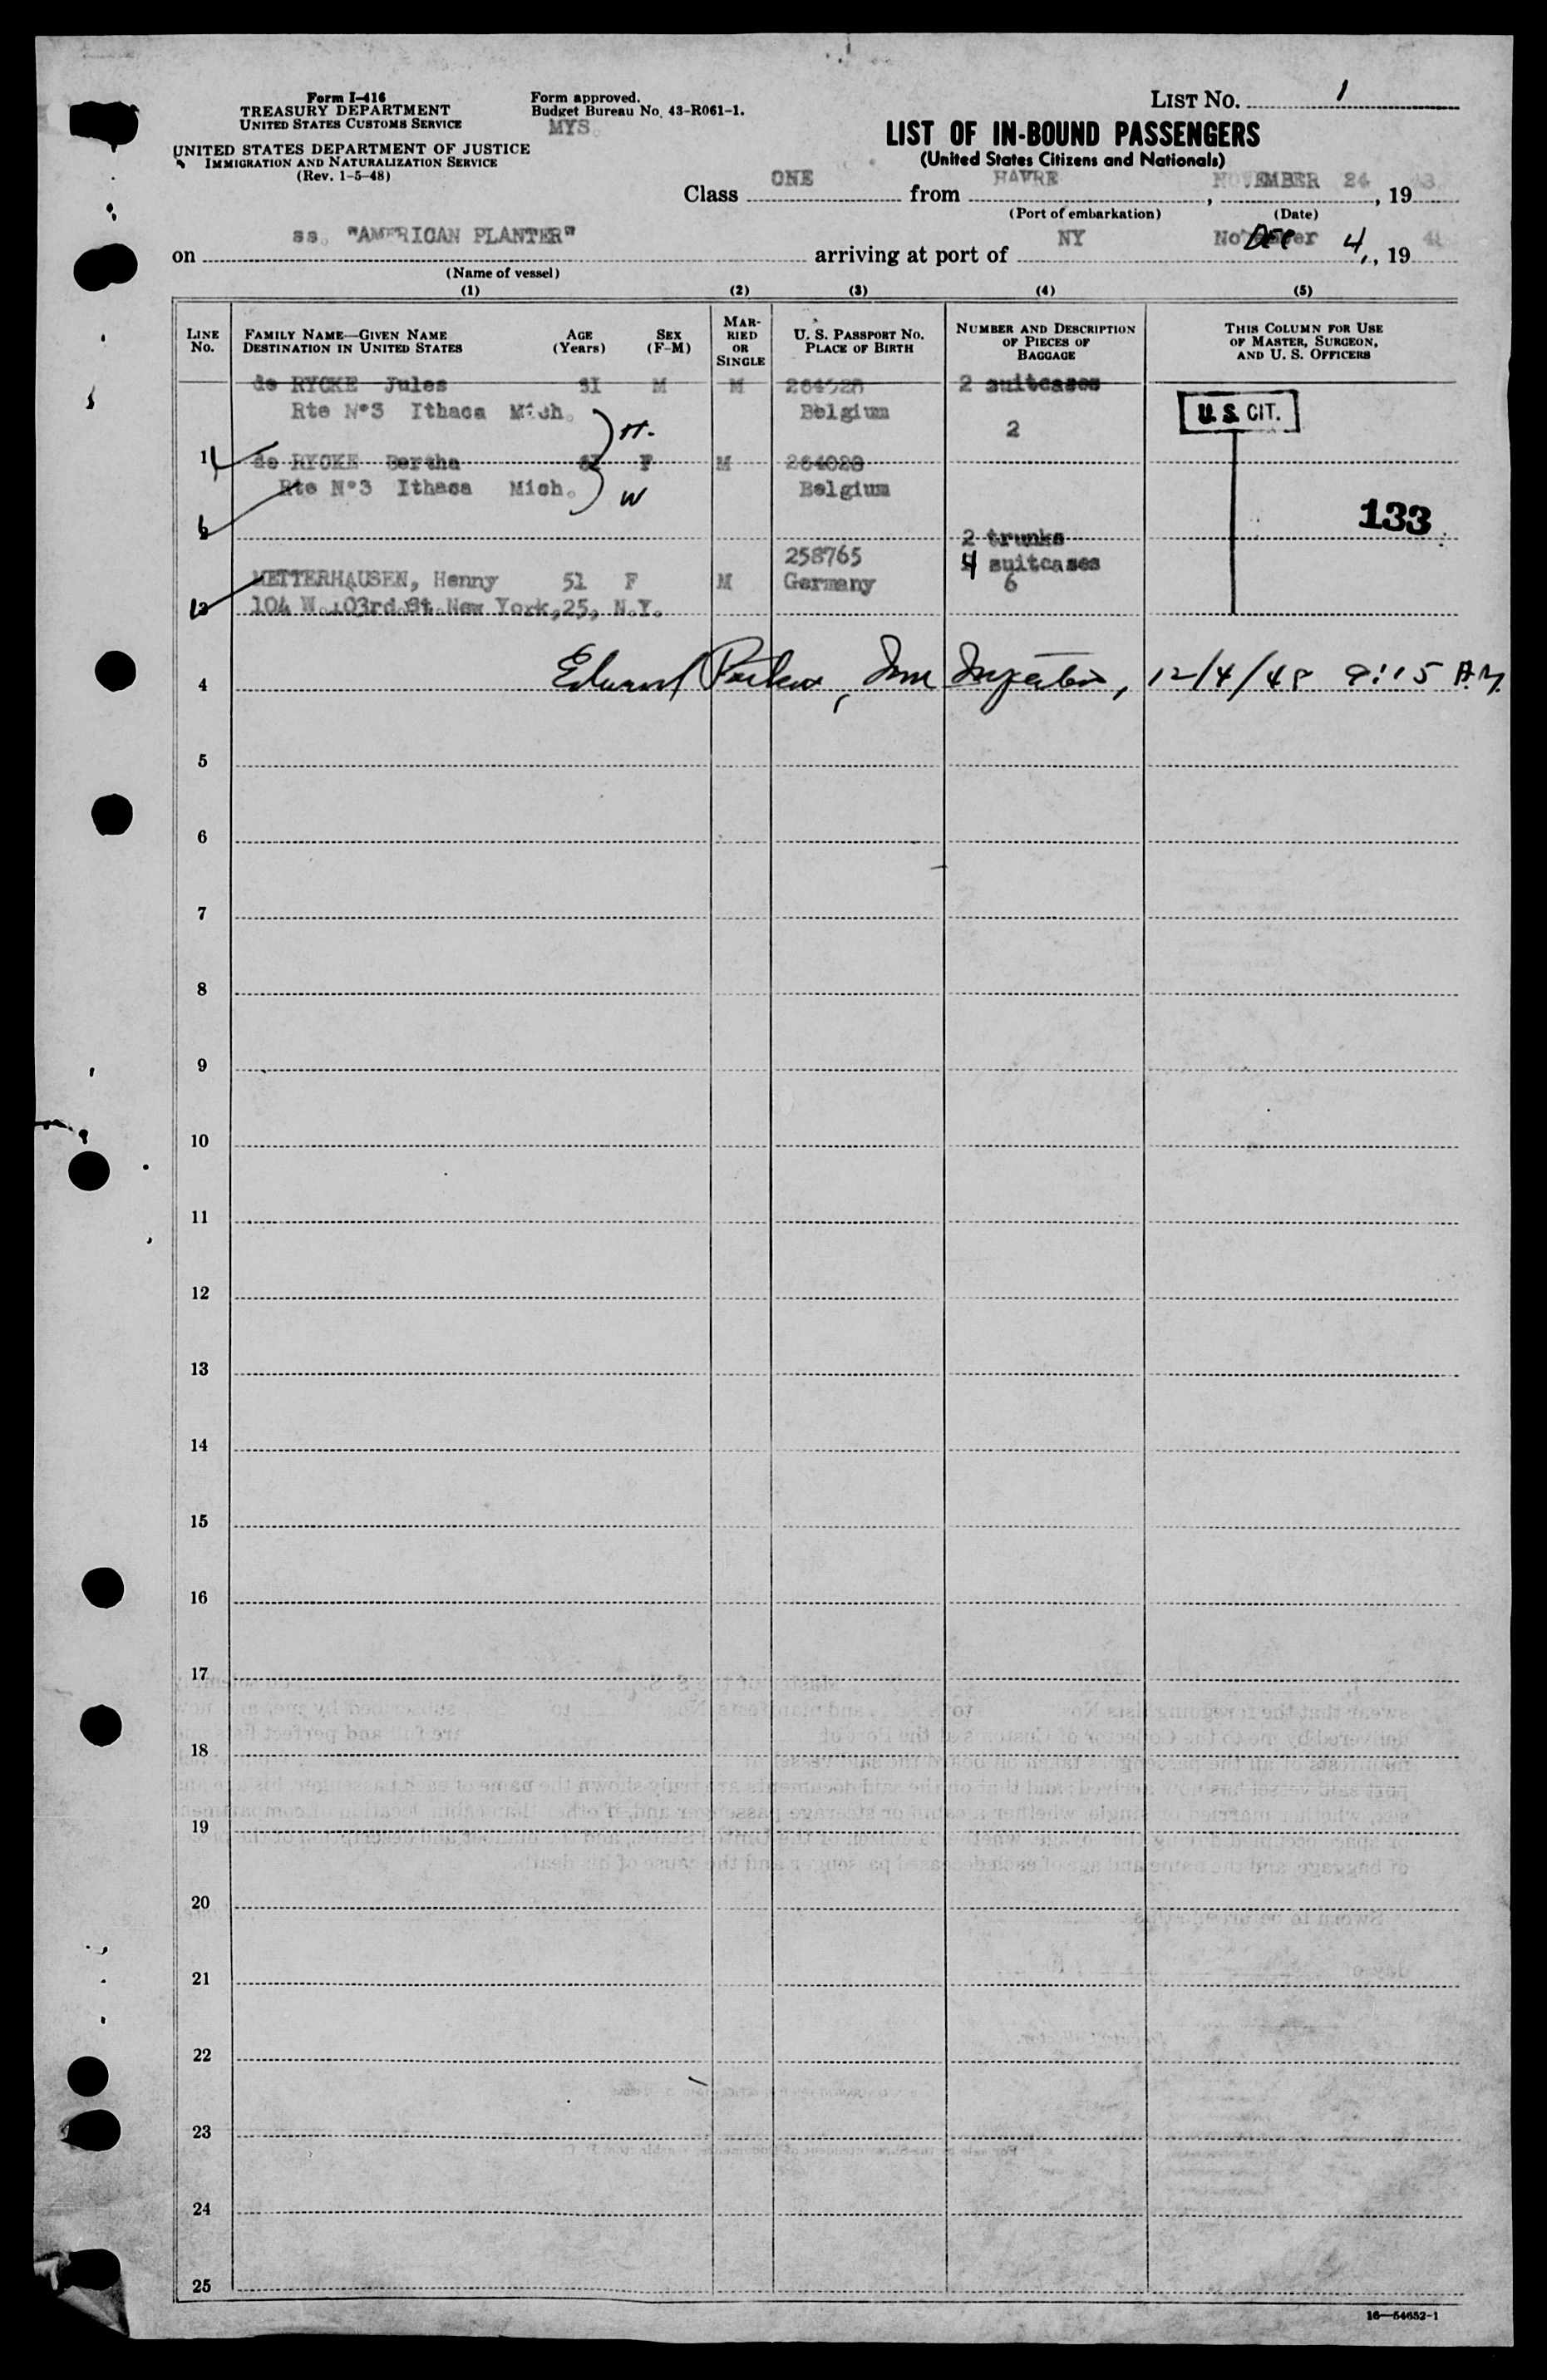 Form I-416
TREASURY DEPARTMENT
UNITED STATES CUSTOMS SERVICE
UNITED STATES DEPARTMENT OF JUSTICE
IMMIGRATION AND NATURALIZATION SERVICE
(Rev. 1-5-48)
Form approved.
Budget Bureau No. 43-R061-1.
MYS.
LIST NO. 1
LIST OF IN-BOUND PASSENGERS
(United States Citizens and Nationals)
Class ONE from HAVRE, NOVEMBER 24, 19 48
(Port of embarkation) (Date)
on ss. "AMERICAN PLANTER" arriving at port of NY November Dec 4, 19 48
(Name of vessel)
(1) (2) (3) (4) (5)
LINE NO.
FAMILY NAME—GIVEN NAME AGE SEX
DESTINATION IN UNITED STATES (Years) (F-M)
MARRIED OR SINGLE
U. S. PASSPORT NO.
PLACE OF BIRTH
NUMBER AND DESCRIPTION
OF PIECES OF
BAGGAGE
THIS COLUMN FOR USE
OF MASTER, SURGEON,
AND U. S. OFFICERS
de RYCKE Jules M M 2 suitcases
Rte N°3 Ithaca Mich. H. Belgium 2 U.S. CIT.
1 de RYCKE Bertha F M 264028
Rte N°3 Ithaca Mich. W Belgium
133
2 trunks
258765 4 suitcases
METTERHAUSEN, Henny 51 F M Germany 6
104 W. 103rd St. New York, 25, N.Y.
4 Edward Parker, Imm Inspector, 12/4/48 8:15 A.M.
5
6
7
8
9
10
11
12
13
14
15
16
17
18
19
20
21
22
23
24
25
16—54652-1